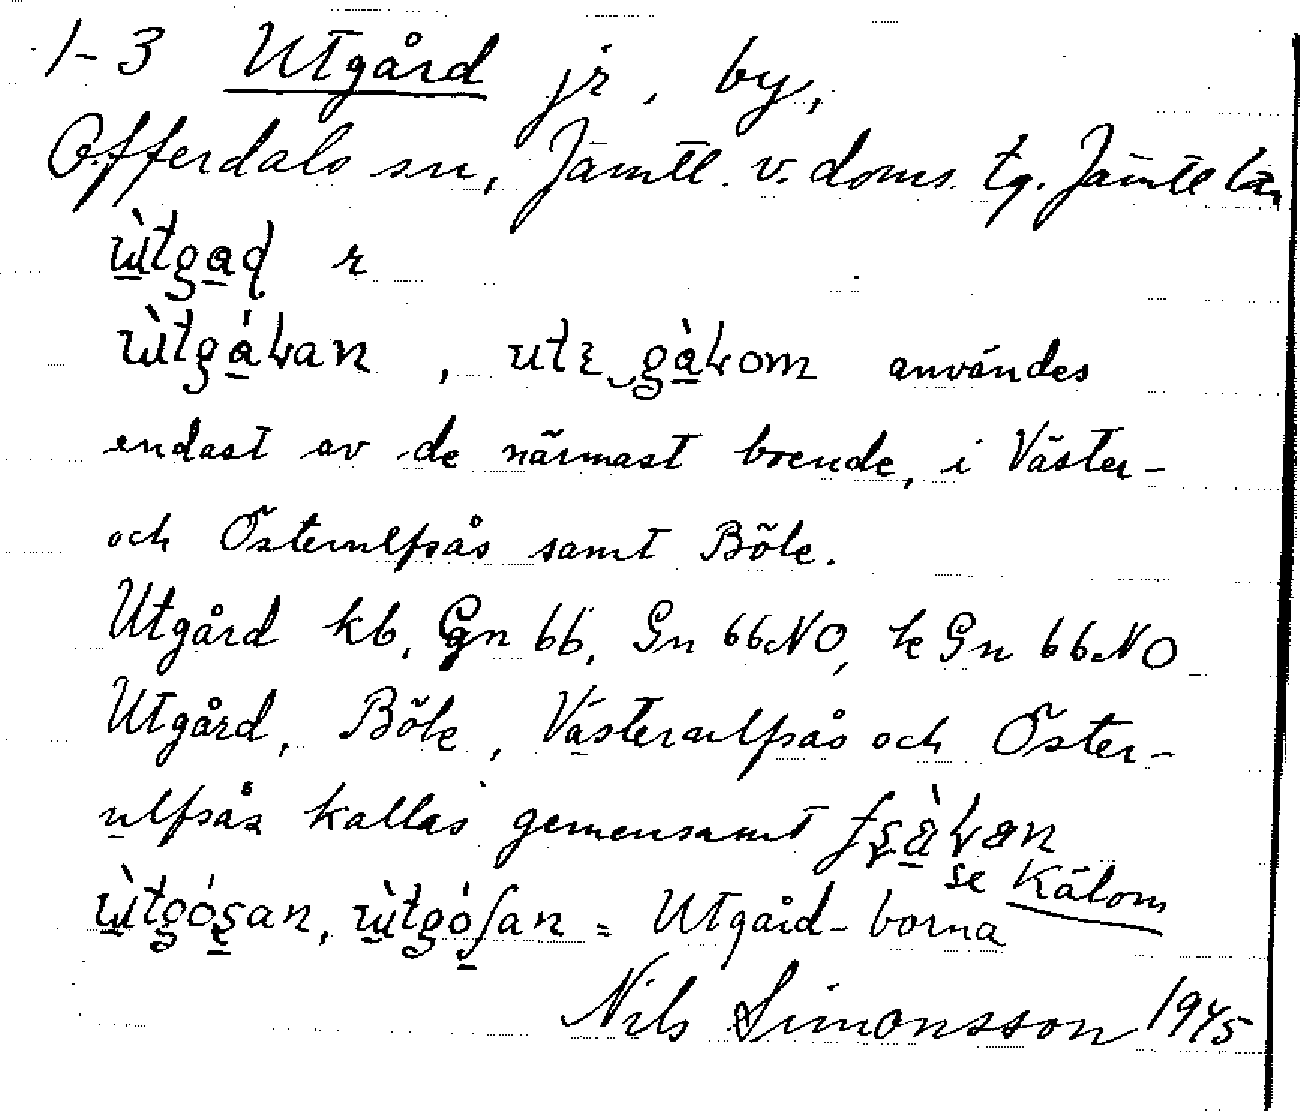 1-3 Utgård jr, by,
Offerdals sn, Jämtl. v. doms. tg. Jämtl län
ùtgaɖ r
ùtgálan, utɛ gàlom användes
endast av de närmast boende, i Väster-
och Österulfsås samt Böle.
Utgård kb, Gn 66, Gn 66 NO, k Gn 66 NO
Utgård, Böle, Västerulfsås och Öster-
ulfsås kallas gemensamt
se Kälom
= Utgård-borna
Nils Simonsson 1945